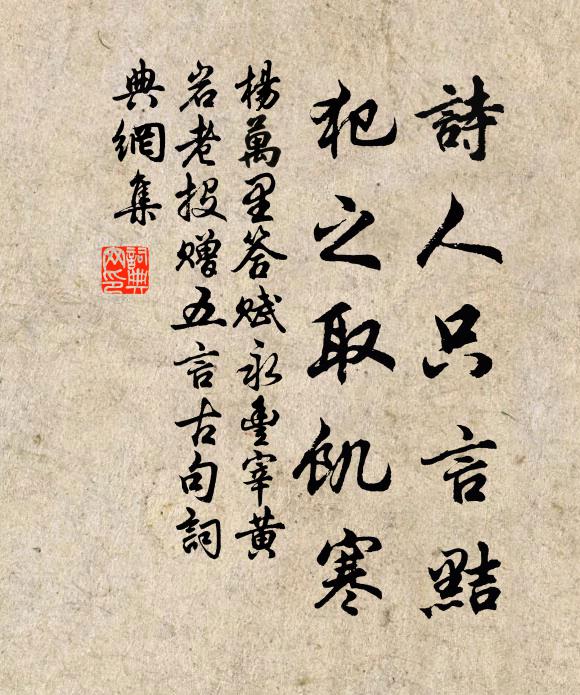 詩人只言黠
犯之取飢寒
楊萬里答賦永豐宰黃
岩老投贈五言古句詞
典網集
詞典網印